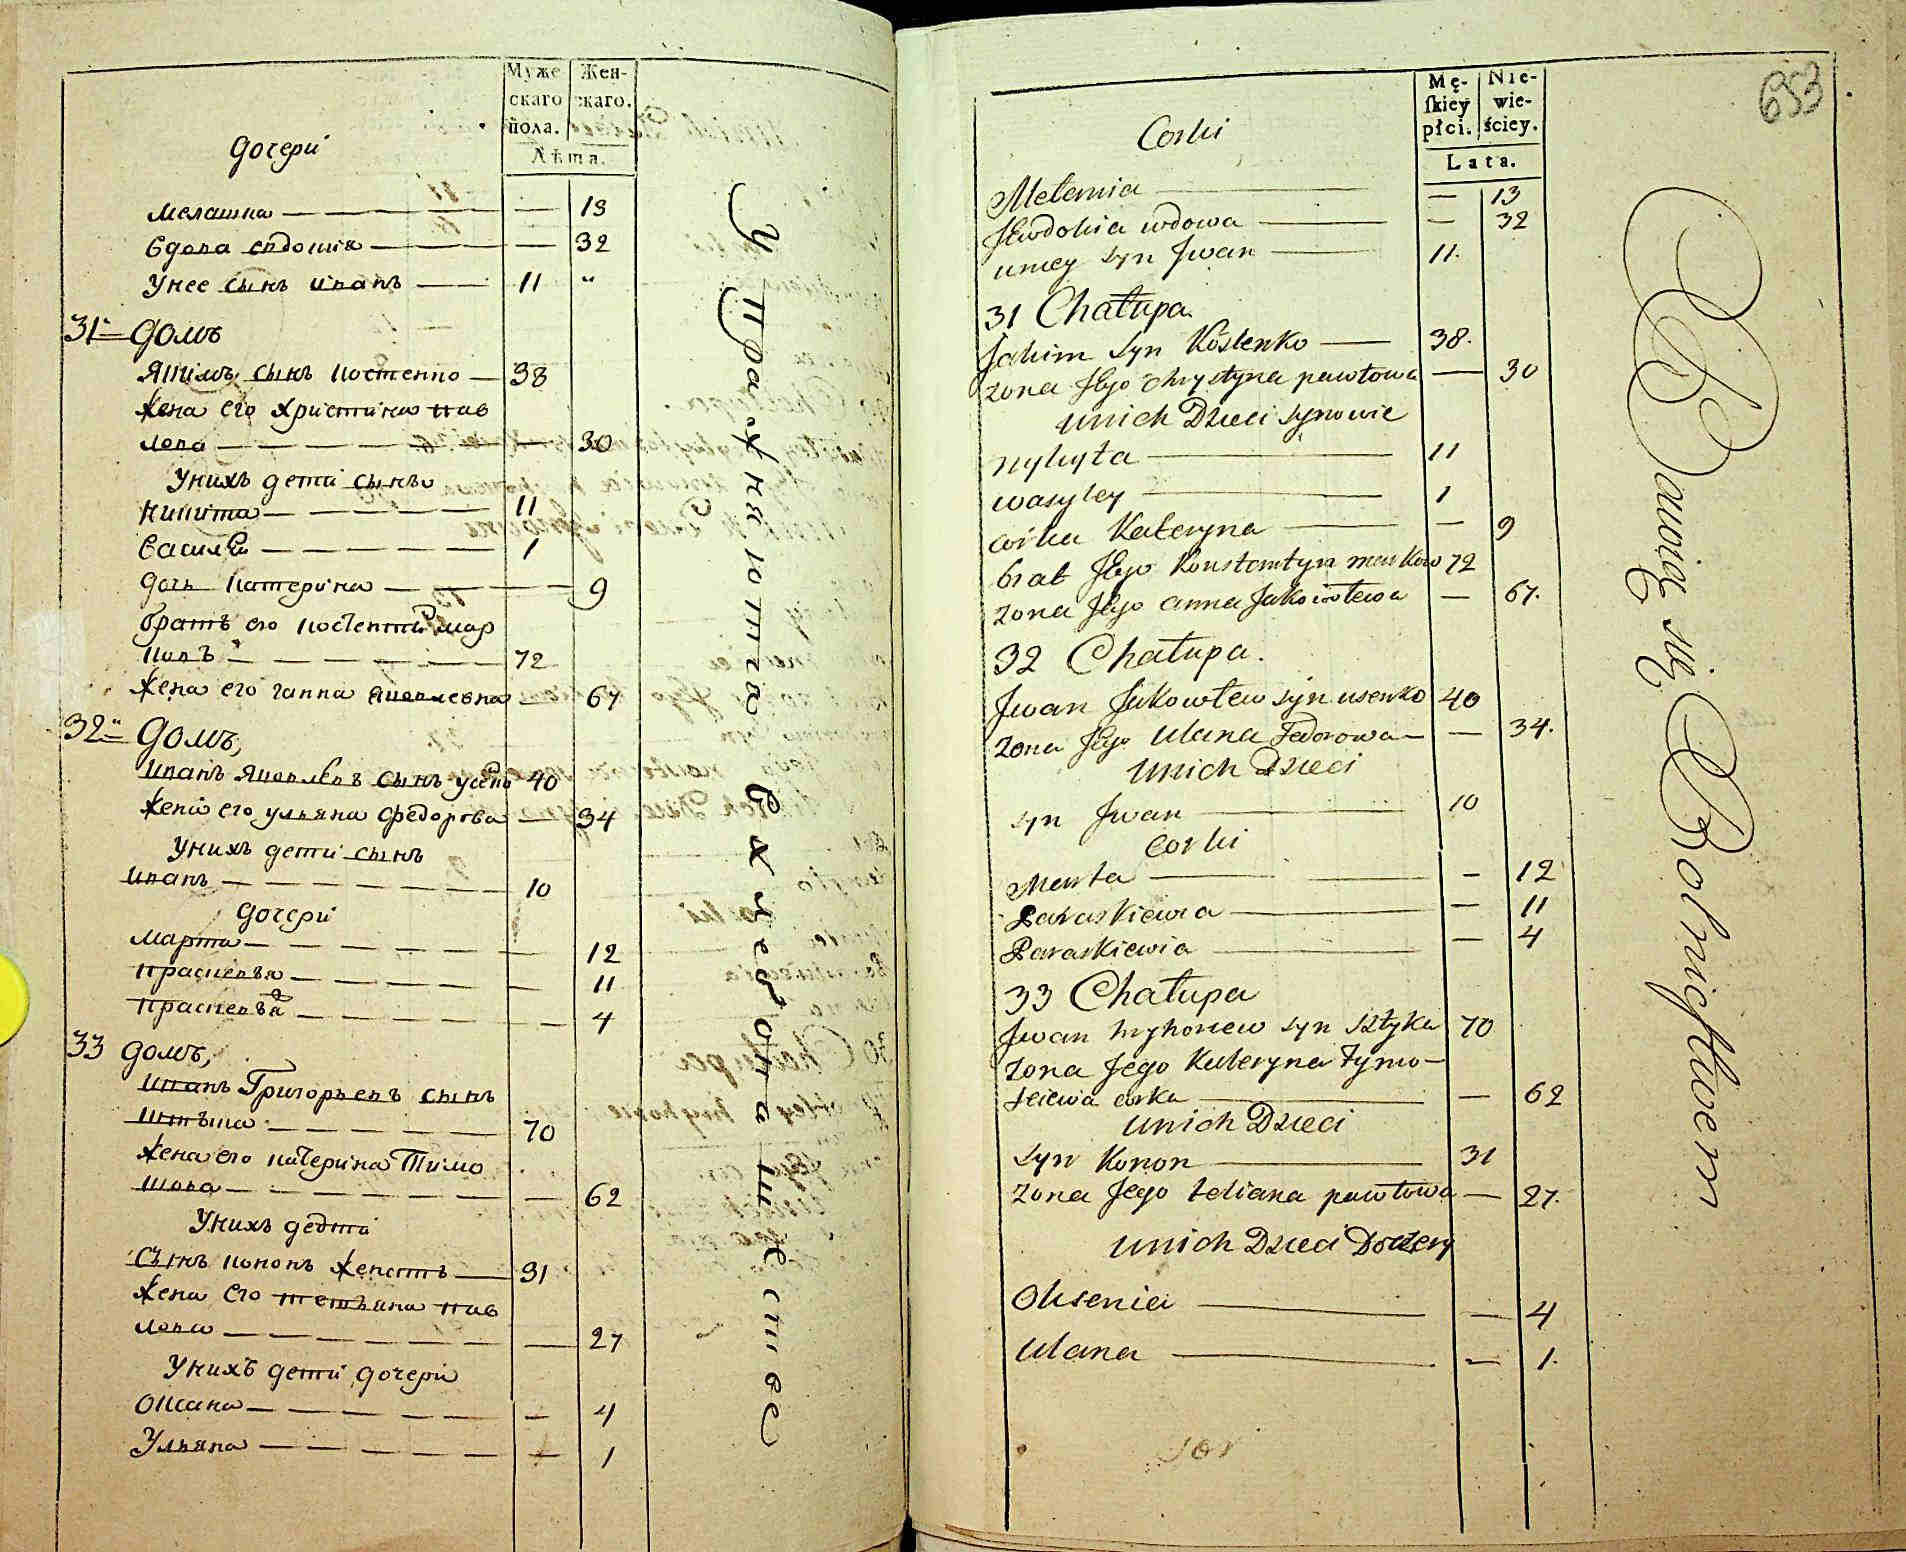 Муже
скаго
пола.
Жен-
скаго.
Лѣта.
Дочери
Мелашка — — 13
Вдова Евдокия — — 32
Унее сынъ иванъ — 11 "
31. Домъ
Якимъ сынъ костенко — 38
Жена его Христина пав
лова — — 30
Унихъ дети сынъ
Никита — 11
Василей — 1
Дочь катерина — 9
братъ его костентин мар
ковъ — 72
Жена его ганна яковлевна — 67
32. Домъ,
Иванъ Яковлевъ сынъ усенко 40
Жена его ульяна Федорова — 34
Унихъ дети сынъ
иванъ — 10
Дочери
Марта — 12
Прасковья — 11
Прасковья — 4
33 Домъ,
Иванъ Григорьевъ сынъ
— 70
Жена его катерина Тимо
— 62
Унихъ дети
Сынъ кононъ женатъ — 31
Жена его тетьяна пав
лова — 27
Унихъ дети дочери
Оксана — — 4
Ульяна — — 1
Упражняются в хлебопашестве
Mę-
ſkiey
płci.
Nie-
wie-
ściey.
Lata.
653
Corki
Melania — — 13
Jewdokia wdowa — — 32
uniey syn Jwan — 11.
31 Chałupa.
Jakim syn Kostenko — 38.
zona Jego Chrystyna pawłowa — 30
unich Dzieci synowie
nykyta — 11
wasyley — 1
corka Kateryna — — 9
brat Jego Konstantyn markow 72
zona Jego anna Jakowlewa — 67.
32 Chałupa.
Jwan Jakowlew syn usenko 40
zona Jego Ulana Fedorowa — — 34.
unich Dzieci
syn Jwan — 10
Corki
Marta — — 12
Paraskiewia — — 11
Paraskiewia — — 4
33 Chałupa
Jwan hryhoriew syn 70
zona Jego Kateryna Tymo-
feiewa corka — — 62
unich Dzieci
syn Konon — 31
zona Jego tetiana pawłowa — 27.
unich Dzieci Doczery
Oksenia — — 4
Ulana — — 1.
Bawią się Rolnictwem